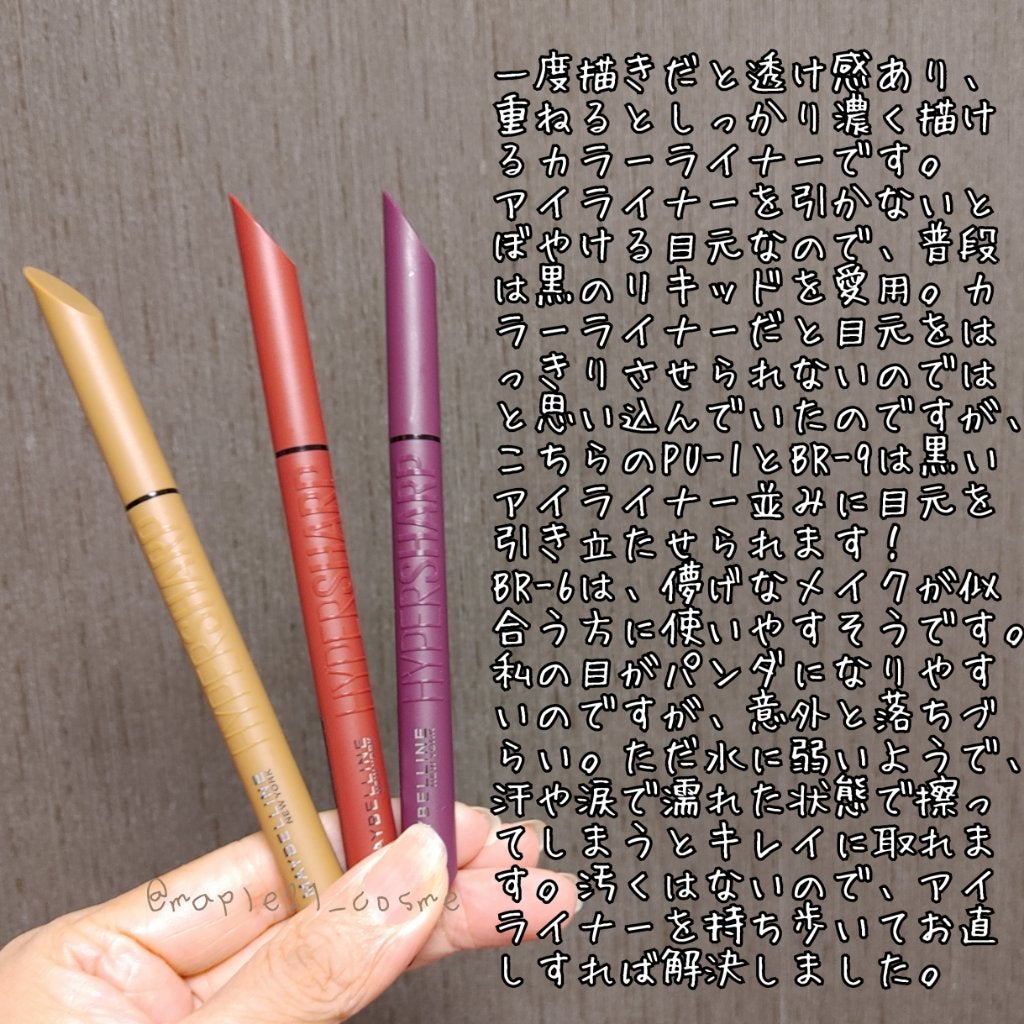 一度描きだと透け感あり、
重ねるとしっかり濃く描け
るカラーライナーです。
アイライナーを引かないと
ぼやける目元なので、普段
は黒のリキッドを愛用。カ
ラーライナーだと目元をは
っきりさせられないのでは
と思い込んでいたのですが、
こちらのPU-1とBR-9は黒い
アイライナー並みに目元を
引き立たせられます!
BR-6は、儚げなメイクが似
合う方に使いやすそうです。
私の目がパンダになりやす
いのですが、意外と落ちづ
らい。ただ水に弱いようで、
汗や涙で濡れた状態で擦っ
てしまうとキレイに取れま
す。汚くはないので、アイ
ライナーを持ち歩いてお直
しすれば解決しました。
HYPERSHARP
MAYBELLINE
NEW YORK
HYPERSHARP
MAYBELLINE
HYPERSHARP
MAYBELLINE